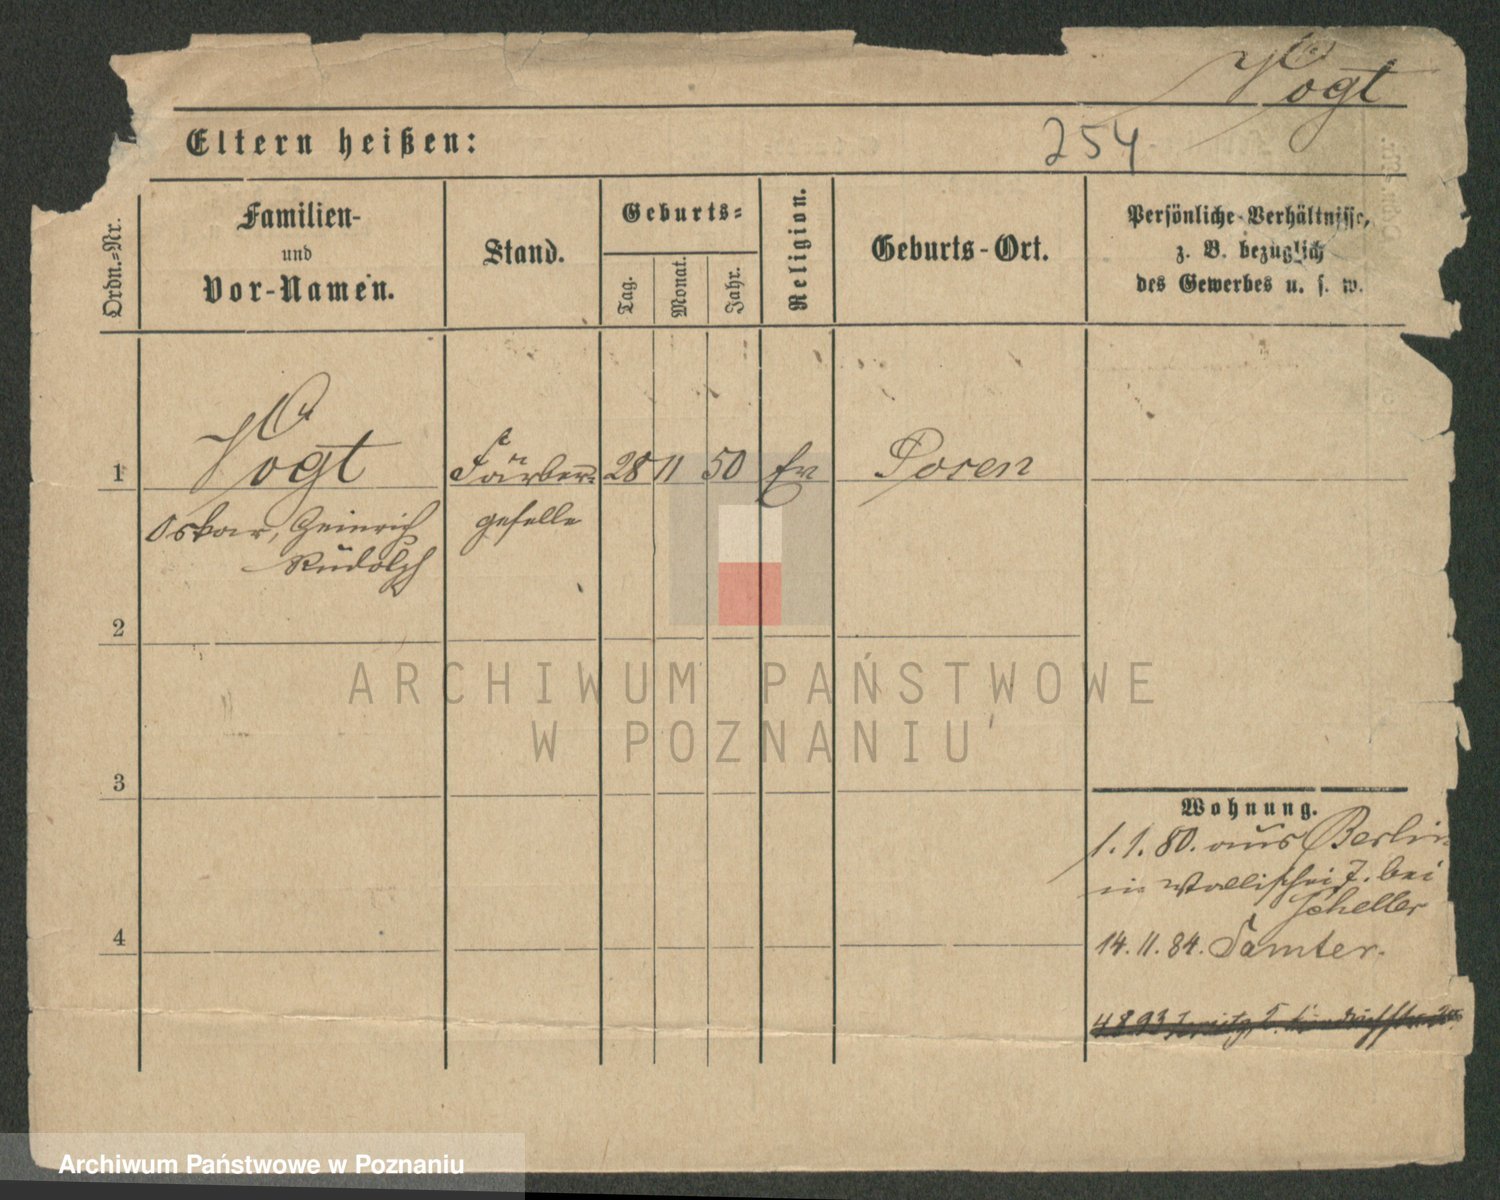 Vogt
254
Eltern heißen:
Ordn.-Nr.
Familien-
und
Vor-Namen.
Stand.
Geburts-
Tag.
Monat.
Jahr.
Religion.
Geburts-Ort.
Persönliche Verhältnisse,
z. B. bezüglich
des Gewerbes u. s. w.
1 Vogt Färber- 28 11 50 Ev Posen
Oskar, Heinrich geselle
Rudolph
2
3
4
Wohnung.
1. 1. 80. aus Berlin
in Wallischei 7. bei
Scheller
14. 11. 84. Samter.
ARCHIWUM PAŃSTWOWE
W POZNANIU
Archiwum Państwowe w Poznaniu